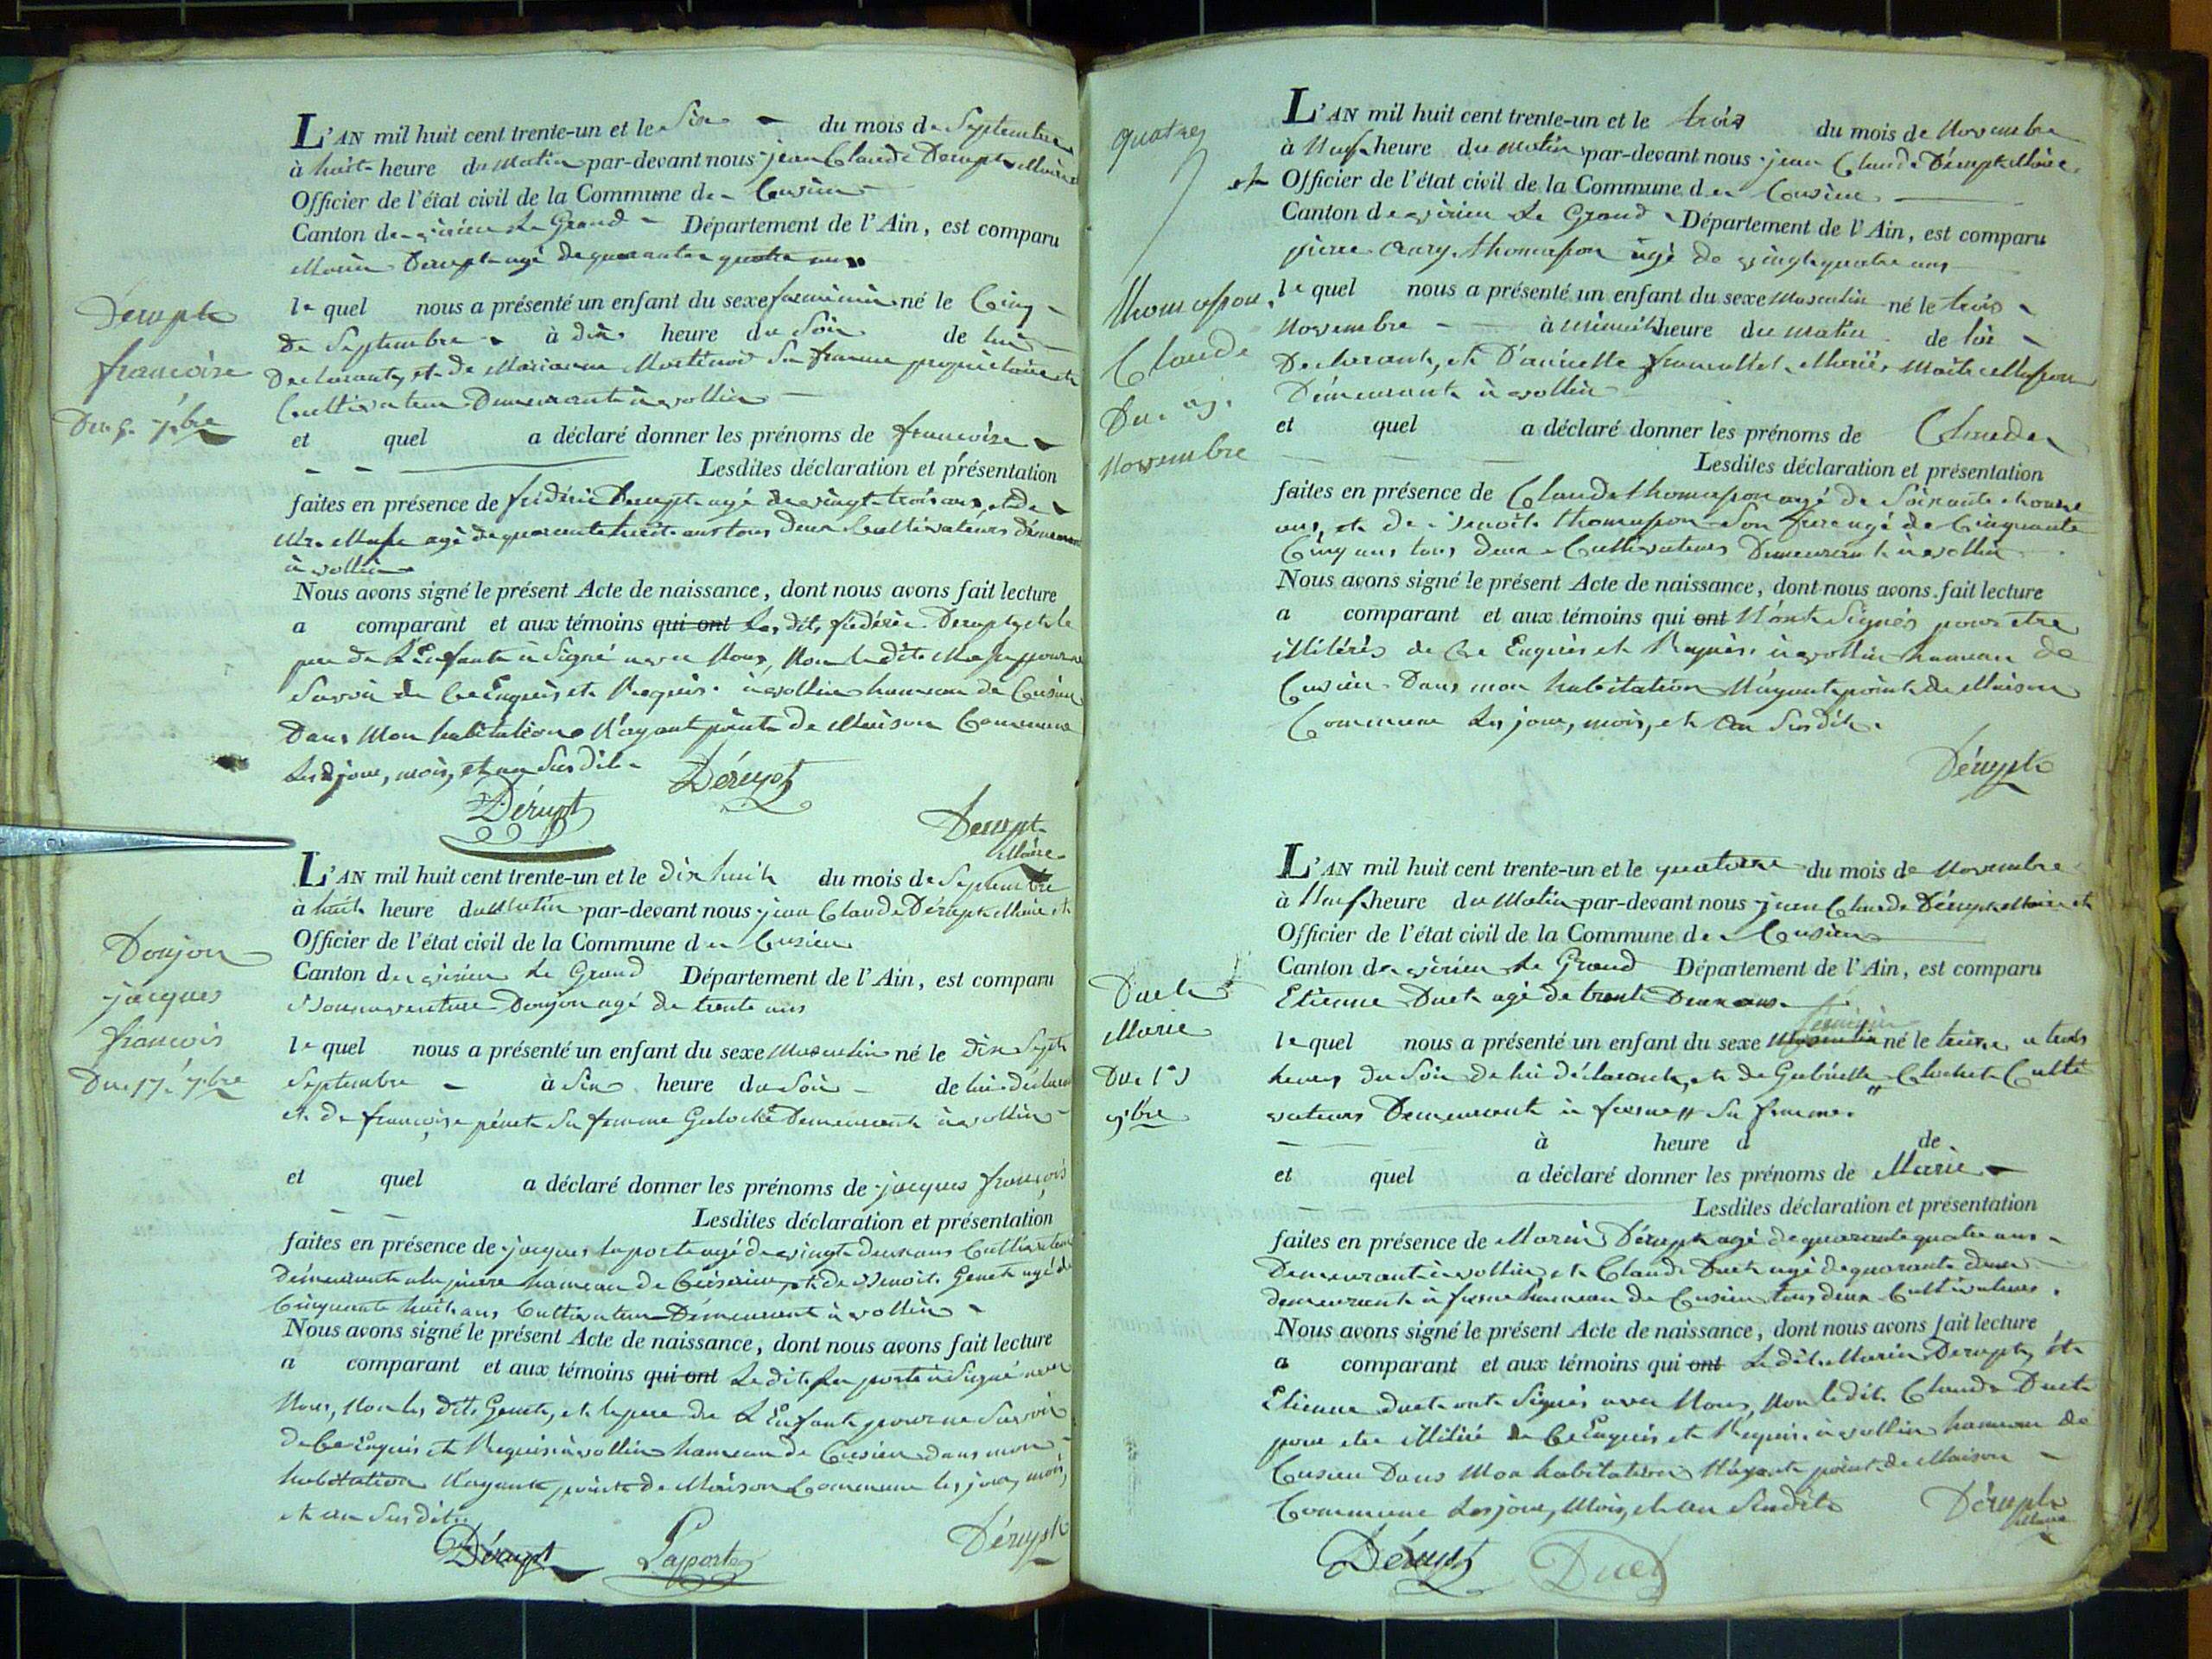 L'AN mil huit cent trente-un et le Six du mois de Septembre
à huit heure du Matin par-devant nous jean Claude Derupt Maire
Officier de l'état civil de la Commune de Cusieu
Canton de virieu Le Grand Département de l'Ain, est comparu
Marin Derupt agé de quarante quatre ans
le quel nous a présenté un enfant du sexe faeminin né le Cinq
De Septembre à dix heure du Soir de lui
Declarant, et de Marianne Martinod Sa femme propriétaire et
Cultivateur Demeurant à vollin
et quel a déclaré donner les prénoms de francoise
Lesdites déclaration et présentation
faites en présence de frédéric Derupt agé de vingt trois ans, et de
Masse agé de quarante huit ans tous deux Cultivateurs demeurant
à vollin
Nous avons signé le présent Acte de naissance, dont nous avons fait lecture
a comparant et aux témoins qui ont Les dits frédéric Derupt, et le
père de L'Enfant à Signé avec Nous, Non le dit Masse pour ne
Savoir de Ce Enquis et Requis. à vollin hameau de Cusieu
Dans Mon habitation N'ayant point de Maison Commune
Les jour, mois, et an Sus dit
Dérupt
Dérupt
Derupt
Maire
Derupt
francoise
Du 5. 7bre
L'AN mil huit cent trente-un et le dix huit du mois de Septembre
à huit heure du Matin par-devant nous jean Claude Dérupt Maire et
Officier de l'état civil de la Commune de Cusieu
Canton de virieu Le Grand Département de l'Ain, est comparu
Bonnaventure Donjon agé de trente ans
le quel nous a présenté un enfant du sexe Masculin né le dix Sept
Septembre à Six heure du Soir de lui déclarant
et de françoise pénet Sa femme Galoche Demeurant à vollin
et quel a déclaré donner les prénoms de jacques françois
Lesdites déclaration et présentation
faites en présence de jacques laporte agé de vingt deux ans Cultivateur
Demeurant a la pierre hameau de Cusieu, et de Benoit Genet agé de
Cinquante huit ans Cultivateur Demeurant à vollin
Nous avons signé le présent Acte de naissance, dont nous avons fait lecture
a comparant et aux témoins qui ont Le dit Laporte à Signé avec
Nous, Non les dits Genet, et le pere de L'Enfant pour ne Savoir
de Ce Enquis et Requis à vollin hameau de Cusieu dans mon
habitation N'ayant point de Maison Commune les jour, mois,
et an Sus dit
Dérupt Laporte Dérupt
Donjon
jacques
francois
Du 17. 7bre
L'AN mil huit cent trente-un et le trois du mois de Novembre
à Neuf heure du matin par-devant nous jean Claude Dérupt Maire
et Officier de l'état civil de la Commune de Cusieu
Canton de virieu Le Grand Département de l'Ain, est comparu
pierre Thomasson agé de vingt quatre ans
le quel nous a présenté un enfant du sexe Masculin né le trois
Novembre à minuit heure du matin de lui
Declarant, et Mariés
Demeurant à vollin
et quel a déclaré donner les prénoms de Claude
Lesdites déclaration et présentation
faites en présence de Claude thomasson agé de Soixante
ans, et de Benoit thomasson Son frere agé de Cinquante
Cinq ans tous deux Cultivateurs Demeurant à vollin
Nous avons signé le présent Acte de naissance, dont nous avons fait lecture
a comparant et aux témoins qui ont N'ont Signés pour etre
illitérés de Ce Enquis et Requis. à vollin hameau de
Cusieu Dans mon habitation N'ayant point de Maison
Commune Les jour, mois, et an Sus dit.
Dérupt
quatre
Thomasson
Claude
Du 3.
Novembre
L'AN mil huit cent trente-un et le quatorze du mois de Novembre
à Neuf heure du Matin par-devant nous jean Claude Dérupt Maire et
Officier de l'état civil de la Commune de Cusieu
Canton de virieu Le Grand Département de l'Ain, est comparu
Etienne Duet agé de trente Deux ans.
le quel nous a présenté un enfant du sexe Masculin féminin né le treize a trois
heures du Soir de lui déclarant, et de Gabrielle Clochet Culti
vateurs Demeurant à fasne Sa femme.
à heure d de
et quel a déclaré donner les prénoms de Marie
Lesdites déclaration et présentation
faites en présence de Marin Dérupt agé de quarante quatre ans
Demeurant à vollin, et Claude Duet agé de quarante deux
demeurant à fasne hameau de Cusieu tous deux Cultivateurs.
Nous avons signé le présent Acte de naissance, dont nous avons fait lecture
a comparant et aux témoins qui ont Le dit Marin Derupt, et
Etienne duet ont Signés avec Nous, Non le dit Claude Duet
pour etre illitéré de Ce Enquis et Requis. à vollin hameau de
Cusieu Dans Mon habitation N'ayant point de Maison
Commune Les jour, Mois, et an Susdit
Dérupt
Maire
Dérupt Duet
Duet
Marie
Du 13
9bre